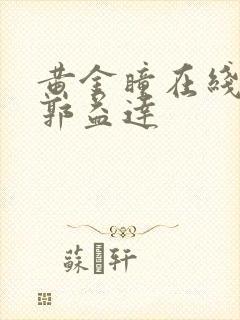 黄金瞳在綫
郭益達
蘇 轩